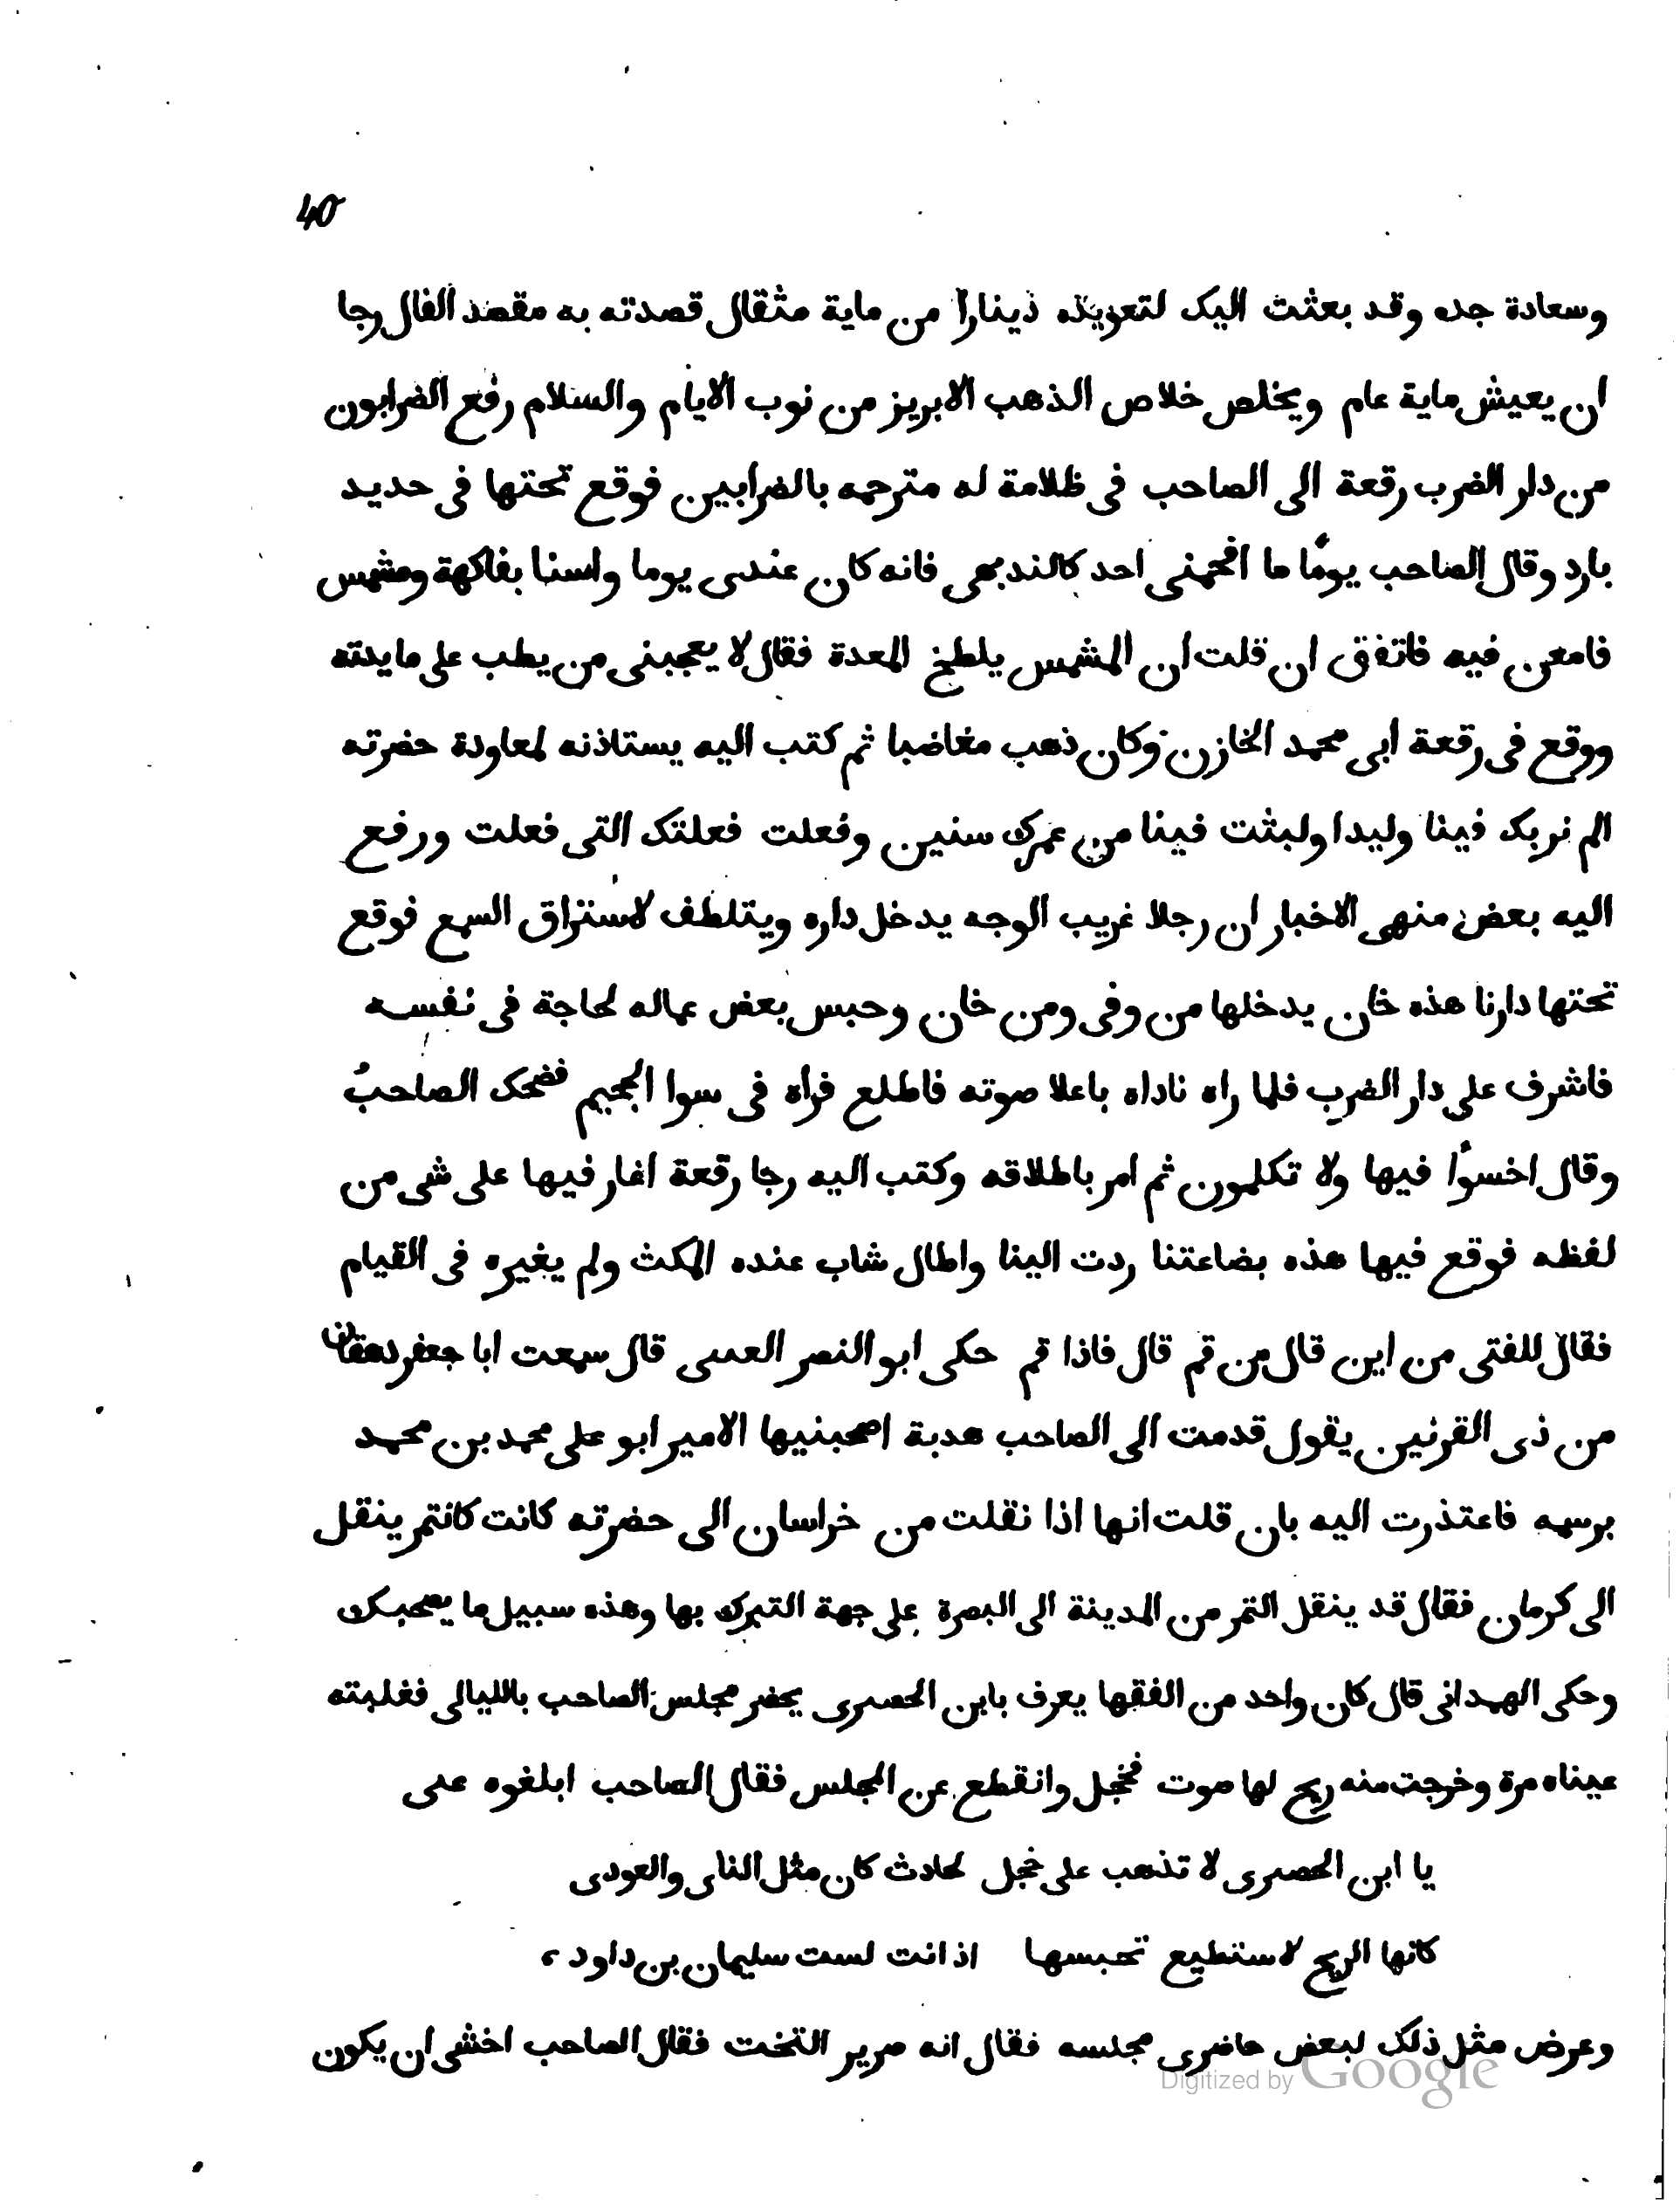 40
وسعادة جده وقد بعثت اليك لتعويذه دينارا من ماية مثقال قصدته به مقصد الفال رجا
ان يعيش ماية عام ويخلص خلاص الذهب الابريز من نوب الايام والسلام رفع الضرابون
من دار الضرب رقعة الى الصاحب فى ظلامة له مترجمه بالضرابين فوقع تحتها فى حديد
بارد وقال الصاحب يومًا ما افحمنى احد فانه كان عندى يوما واسنا بفاكهة ومشمس
فامعن فيه فاتفق ان قلت ان المشمس يلطخ المعدة فقال لا يعجبنى من يطب على مايدته
ووقع فى رقعة ابى محمد الخازن وكان ذهب مغاضبا ثم كتب اليه يستاذنه لمعاودة حضرته
الم نربك فينا وليدا ولبثت فينا من عمرك سنين وفعلت فعلتك التى فعلت ورفع
اليه بعض منهى الاخبار ان رجلا غريب الوجه يدخل داره ويتلطف لاستراق السمع فوقع
تحتها دارنا هذه خان يدخلها من وفى ومن خان وحبس بعض عماله لحاجة فى نفسه
فاشرف على دار الضرب فلما راه ناداه باعلا صوته فاطلع فراه فى سوا الجحيم فضحك الصاحبُ
وقال اخسوًا فيها ولا تكلمون ثم امر باطلاقه وكتب اليه رجا رقعة اغار فيها على شى من
لفظه فوقع فيها هذه بضاعتنا ردت الينا واطال شاب عنده المكث ولم يغيره فى القيام
فقال للفتى من اين قال من قم قال فاذا قم حكى ابو النصر العمى قال سمعت ابا جعفر دهقان
من ذى القرنين يقول قدمت الى الصاحب هدية اصحبنيها الامير ابو على محمد بن محمد
برسمه فاعتذرت اليه بان قلت انها اذا نقلت من خراسان الى حضرته كانت كالتمر ينقل
الى كرمان فقال قد ينقل التمر من المدينة الى البصرة على جهة التبرك بها وهذه سبيل ما يصحبك
وحكى الهمدانى قال كان واحد من الفقها يعرف بابن الحصىرى يحضر مجلس الصاحب بالليالى فغلبته
عيناه مرة وخرجت منه ريح لها صوت فخجل وانقطع عن المجلس فقال الصاحب ابلغوه عنى
يا ابن الحصىرى لا تذهب على خجل لحادث كان مثل الناى والعودى
كانها الريح لاستطيع تحبسها اذ انت لست سليمان بن داود
وعرض مثل ذلك لبعض حاضرى مجلسه فقال انه صرير التخت فقال الصاحب اخشى ان يكون
Digitized by Google